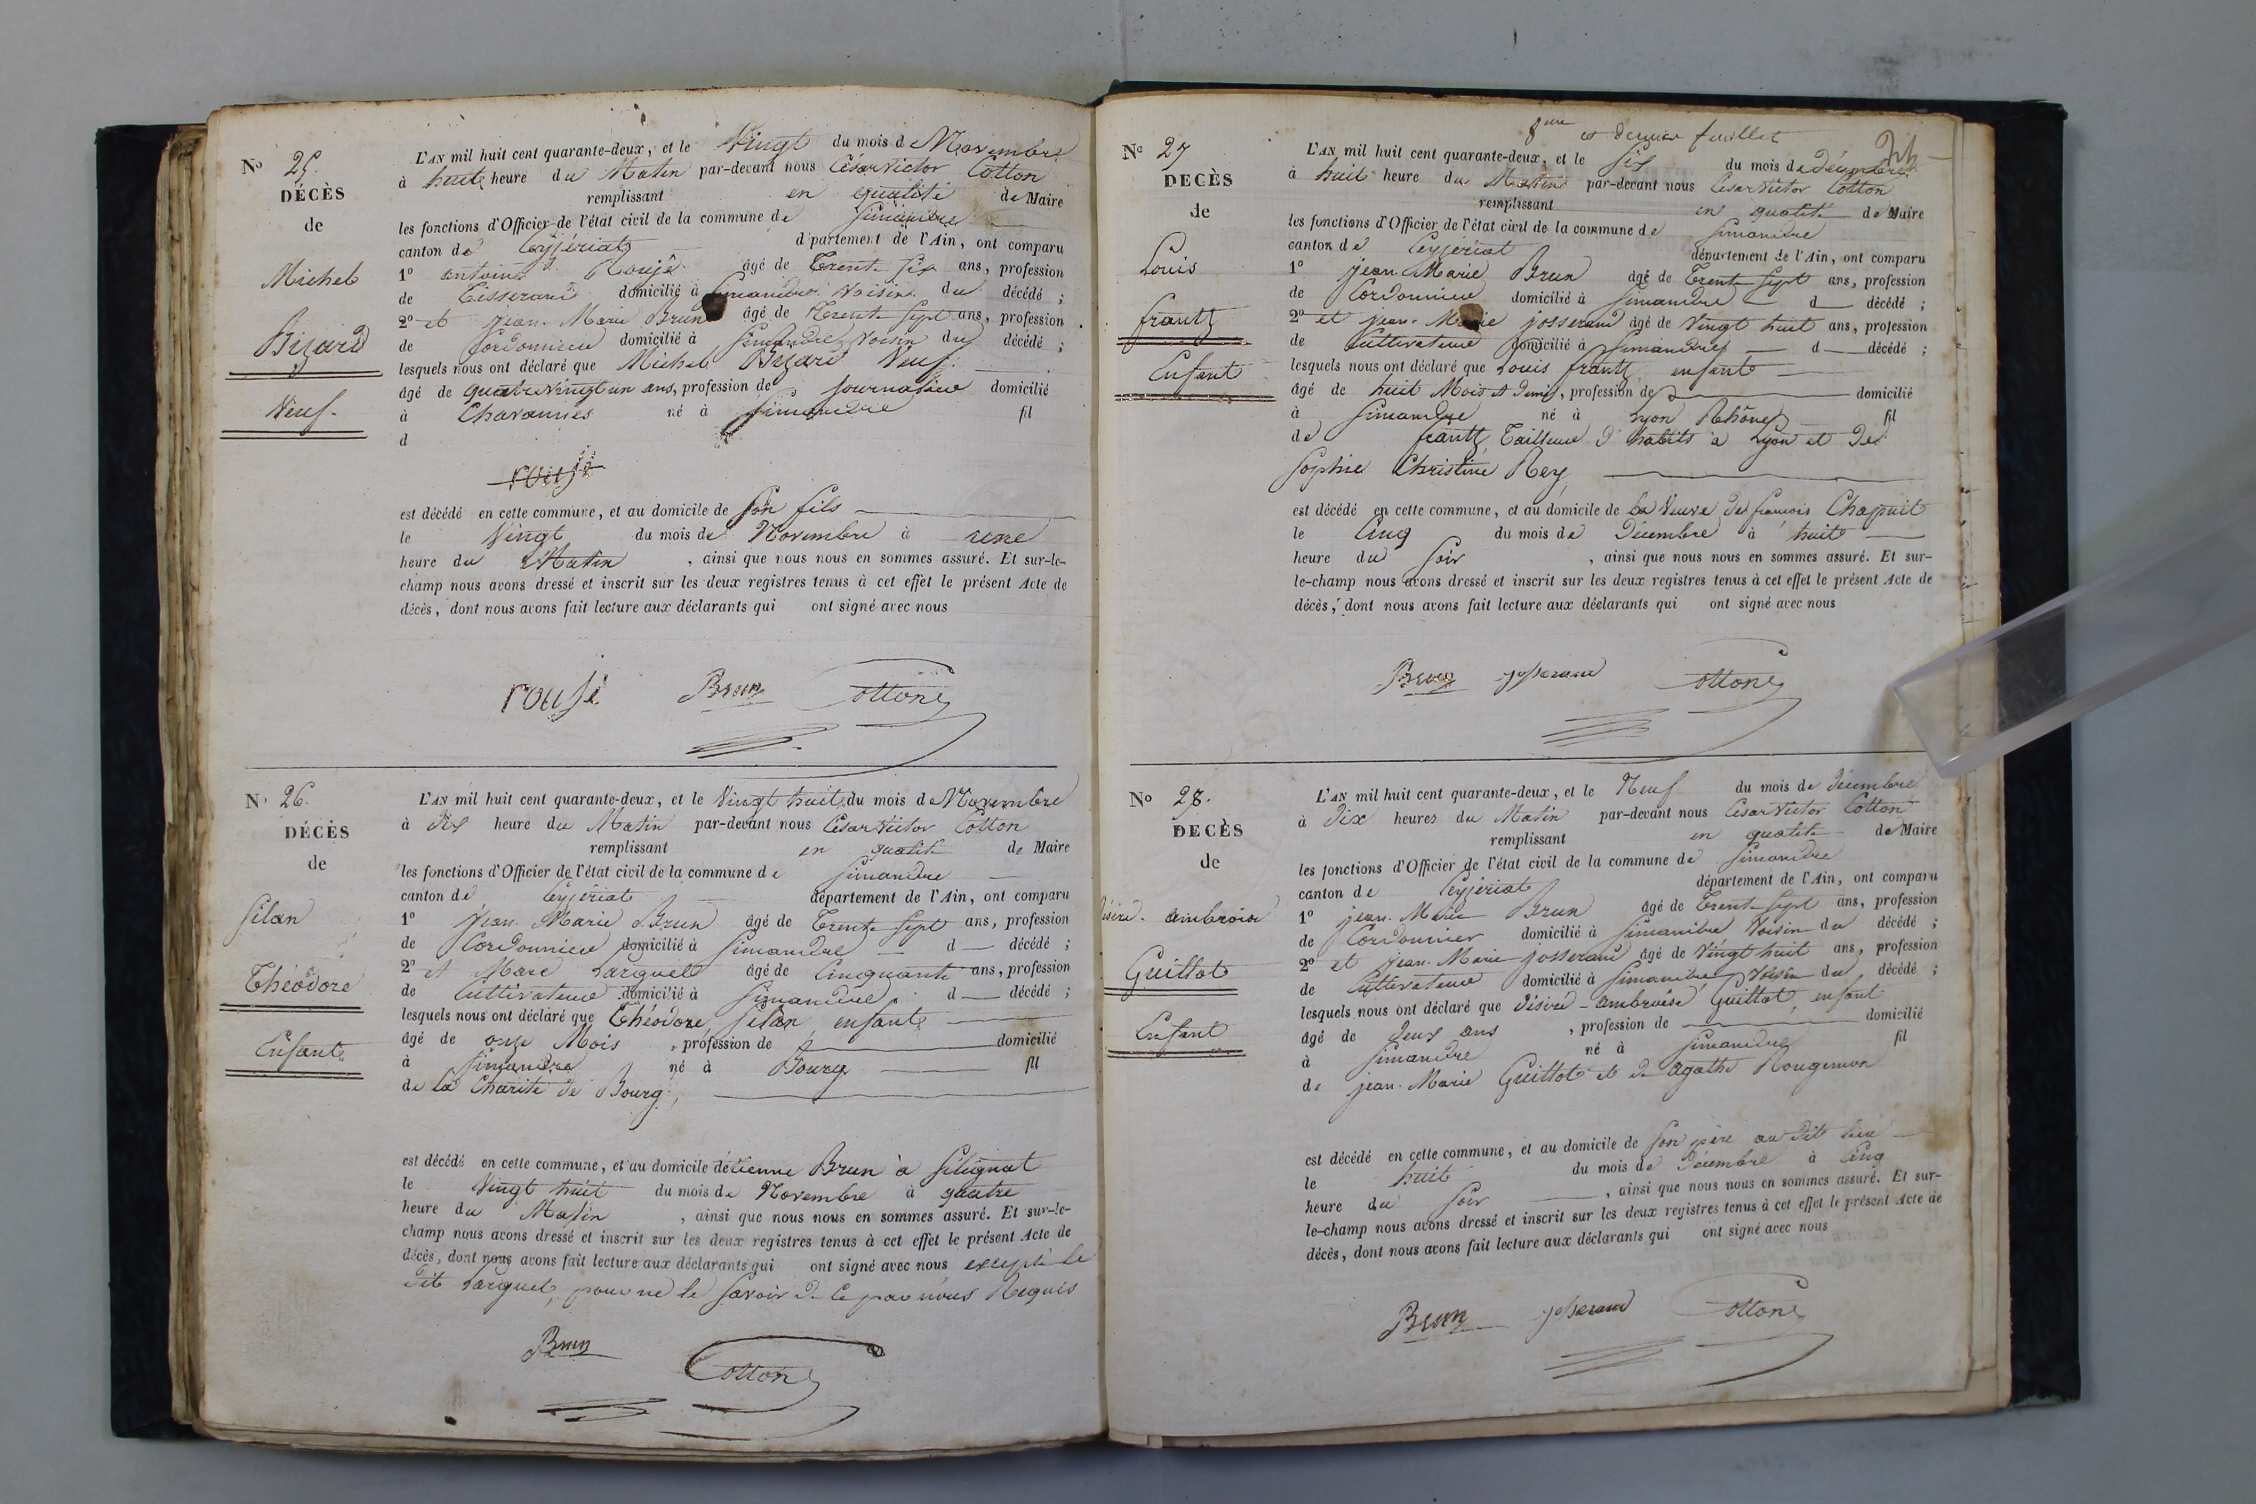 No 25.
DÉCÈS
de
Michel
Bizard
Veuf.
L'AN mil huit cent quarante-deux, et le Vingt du mois de Novembre
à huit heure du Matin par-devant nous César Victor Cotton
remplissant en qualité de Maire
les fonctions d'Officier de l'état civil de la commune de Simandre
canton de Ceyzériat département de l'Ain, ont comparu
1o antoine Rousé âgé de Trente six ans, profession
de Tisserand domicilié à Simandre Voisin du décédé ;
2o et jean-Marie Brun âgé de Trente Sept ans, profession
de Cordonnier domicilié à Simandre Voisin du décédé ;
lesquels nous ont déclaré que Michel Bizard Veuf
âgé de quatre Vingt un ans, profession de journalier domicilié
à Chavannes né à Simandre fil
d
est décédé en cette commune, et au domicile de Son fils
le Vingt du mois de Novembre à une
heure du Matin , ainsi que nous nous en sommes assuré. Et sur-le-
champ nous avons dressé et inscrit sur les deux registres tenus à cet effet le présent Acte de
décès, dont nous avons fait lecture aux déclarants qui ont signé avec nous
rousé Brun Cotton
No 26.
DÉCÈS
de
Silan
Théodore
Enfant
L'AN mil huit cent quarante-deux, et le Vingt huit du mois de Novembre
à dix heure du Matin par-devant nous César Victor Cotton
remplissant en qualité de Maire
les fonctions d'Officier de l'état civil de la commune de Simandre
canton de Ceyzériat département de l'Ain, ont comparu
1o jean-Marie Brun âgé de Trente Sept ans, profession
de Cordonnier domicilié à Simandre d décédé ;
2o et Marc Larguet âgé de Cinquante ans, profession
de Cultivateur domicilié à Simandre d décédé ;
lesquels nous ont déclaré que Théodore Silan, enfant
âgé de onze Mois , profession de domicilié
à Simandre né à Bourg fil
de la Charité de Bourg,
est décédé en cette commune, et au domicile d'étienne Brun à Sélignat
le Vingt huit du mois de Novembre à quatre
heure du Matin , ainsi que nous nous en sommes assuré. Et sur-le-
champ nous avons dressé et inscrit sur les deux registres tenus à cet effet le présent Acte de
décès, dont nous avons fait lecture aux déclarants qui ont signé avec nous excepté le
dit Larguet, pour ne le Savoir de ce par nous Requis
Brun Cotton
8me et dernier feuillet
No 27
DECÈS
de
Louis
frantz
Enfant
L'AN mil huit cent quarante-deux, et le Six du mois de Décembre
à huit heure du Matin par-devant nous César Victor Cotton
remplissant en qualité de Maire
les fonctions d'Officier de l'état civil de la commune de Simandre
canton de Ceyzériat département de l'Ain, ont comparu
1o jean-Marie Brun âgé de Trente Sept ans, profession
de Cordonnier domicilié à Simandre d décédé ;
2o et jean-Marie josserand âgé de Vingt huit ans, profession
de Cultivateur domicilié à Simandre d décédé ;
lesquels nous ont déclaré que Louis frantz enfant
âgé de huit Mois et Demi, profession de domicilié
à Simandre né à Lyon Rhône fil
de frantz, Tailleur d'habits à Lyon et de
Sophie Christine Rey
est décédé en cette commune, et au domicile de la Veuve de françois Chapuit
le Cinq du mois de Décembre à huit
heure du Soir , ainsi que nous nous en sommes assuré. Et sur-
le-champ nous avons dressé et inscrit sur les deux registres tenus à cet effet le présent Acte de
décès, dont nous avons fait lecture aux déclarants qui ont signé avec nous
Brun josserand Cotton
No 28.
DECÈS
de
Désiré-ambroise
Guillot
Enfant
L'AN mil huit cent quarante-deux, et le Neuf du mois de Décembre
à Dix heures du Matin par-devant nous César Victor Cotton
remplissant en qualité de Maire
les fonctions d'Officier de l'état civil de la commune de Simandre
canton de Ceyzériat département de l'Ain, ont comparu
1o jean-Marie Brun âgé de Trente Sept ans, profession
de Cordonnier domicilié à Simandre Voisin du décédé ;
2o et jean-Marie josserand âgé de Vingt huit ans, profession
de Cultivateur domicilié à Simandre, Voisin du décédé ;
lesquels nous ont déclaré que Désiré-ambroise Guillot, enfant
âgé de deux ans , profession de domicilié
à Simandre né à Simandre fil
de jean-Marie Guillot et de agathe Rougemon
est décédé en cette commune, et au domicile de Son père au dit lieu
le huit du mois de Décembre à Cinq
heure du Soir , ainsi que nous nous en sommes assuré. Et sur-
le-champ nous avons dressé et inscrit sur les deux registres tenus à cet effet le présent Acte de
décès, dont nous avons fait lecture aux déclarants qui ont signé avec nous
Brun josserand Cotton